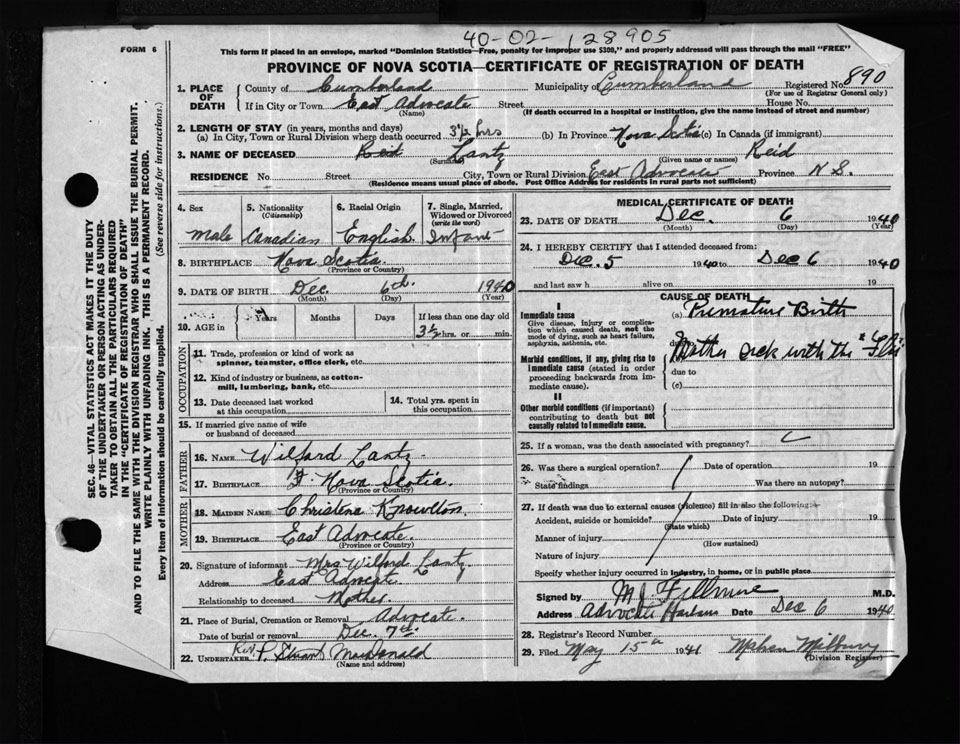 40-02-128905
FORM 6
This form if placed in an envelope, marked "Dominion Statistics—Free, penalty for improper use $300," and properly addressed will pass through the mail "FREE"
PROVINCE OF NOVA SCOTIA—CERTIFICATE OF REGISTRATION OF DEATH
1. PLACE OF DEATH County of Cumberland Municipality of Cumberland Registered No. 890
(For use of Registrar General only)
If in City or Town East Advocate Street House No.
(Name) (If death occurred in a hospital or institution, give the name instead of street and number)
2. LENGTH OF STAY (in years, months and days)
(a) In City, Town or Rural Division where death occurred 3½ hrs (b) In Province Nova Scotia (c) In Canada (if immigrant)
3. NAME OF DECEASED Reid Lantz Reid
(Surname) (Given name or names)
RESIDENCE No. Street City, Town or Rural Division East Advocate Province N.S.
(Residence means usual place of abode. Post Office Address for residents in rural parts not sufficient)
4. Sex 5. Nationality (Citizenship) 6. Racial Origin 7. Single, Married, Widowed or Divorced (write the word)
Male Canadian English Infant
8. BIRTHPLACE Nova Scotia
(Province or Country)
9. DATE OF BIRTH Dec. 6th. 1940
(Month) (Day) (Year)
10. AGE in Years Months Days If less than one day
3½ hrs. or min.
OCCUPATION
11. Trade, profession or kind of work as spinner, teamster, office clerk, etc.
12. Kind of industry or business, as cotton-mill, lumbering, bank, etc.
13. Date deceased last worked at this occupation
14. Total yrs. spent in this occupation
15. If married give name of wife or husband of deceased
FATHER
16. NAME Wilfard Lantz
17. BIRTHPLACE Nova Scotia
(Province or Country)
MOTHER
18. MAIDEN NAME Christena Knowlton
19. BIRTHPLACE East Advocate
(Province or Country)
20. Signature of informant Mrs Wilford Lantz
Address East Advocate
Relationship to deceased Mother
21. Place of Burial, Cremation or Removal Advocate.
Date of burial or removal Dec. 7th.
22. UNDERTAKER Rev. P. Stuart MacDonald
(Name and address)
MEDICAL CERTIFICATE OF DEATH
23. DATE OF DEATH Dec. 6 1940
(Month) (Day) (Year)
24. I HEREBY CERTIFY that I attended deceased from:
Dec. 5 1940 to Dec 6 1940
and last saw h alive on 19
CAUSE OF DEATH
I
Immediate cause (a) Premature Birth
Give disease, injury or complication which caused death, not the mode of dying, such as heart failure, asphyxia, asthenia, etc.
due to
Mother sick with the "Flu"
Morbid conditions, if any, giving rise to immediate cause (stated in order proceeding backwards from immediate cause).
due to
(c)
II
Other morbid conditions (if important) contributing to death but not causally related to immediate cause.
25. If a woman, was the death associated with pregnancy?
26. Was there a surgical operation? Date of operation 19
State findings Was there an autopsy?
27. If death was due to external causes (violence) fill in also the following:
Accident, suicide or homicide? Date of injury 19
(State which)
Manner of injury
(How sustained)
Nature of injury
Specify whether injury occurred in industry, in home, or in public place
Signed by M J Fillmore M.D.
Address Advocate Harbour Date Dec 6 1940
28. Registrar's Record Number
29. Filed May 15th 1941 Milbury
(Division Registrar)
SEC. 46—VITAL STATISTICS ACT MAKES IT THE DUTY
OF THE UNDERTAKER OR PERSON ACTING AS UNDER-
TAKER TO OBTAIN ALL THE PARTICULARS REQUIRED
IN THE "CERTIFICATE OF REGISTRATION OF DEATH"
AND TO FILE THE SAME WITH THE DIVISION REGISTRAR WHO SHALL ISSUE THE BURIAL PERMIT.
WRITE PLAINLY WITH UNFADING INK. THIS IS A PERMANENT RECORD.
Every item of information should be carefully supplied. (See reverse side for instructions.)